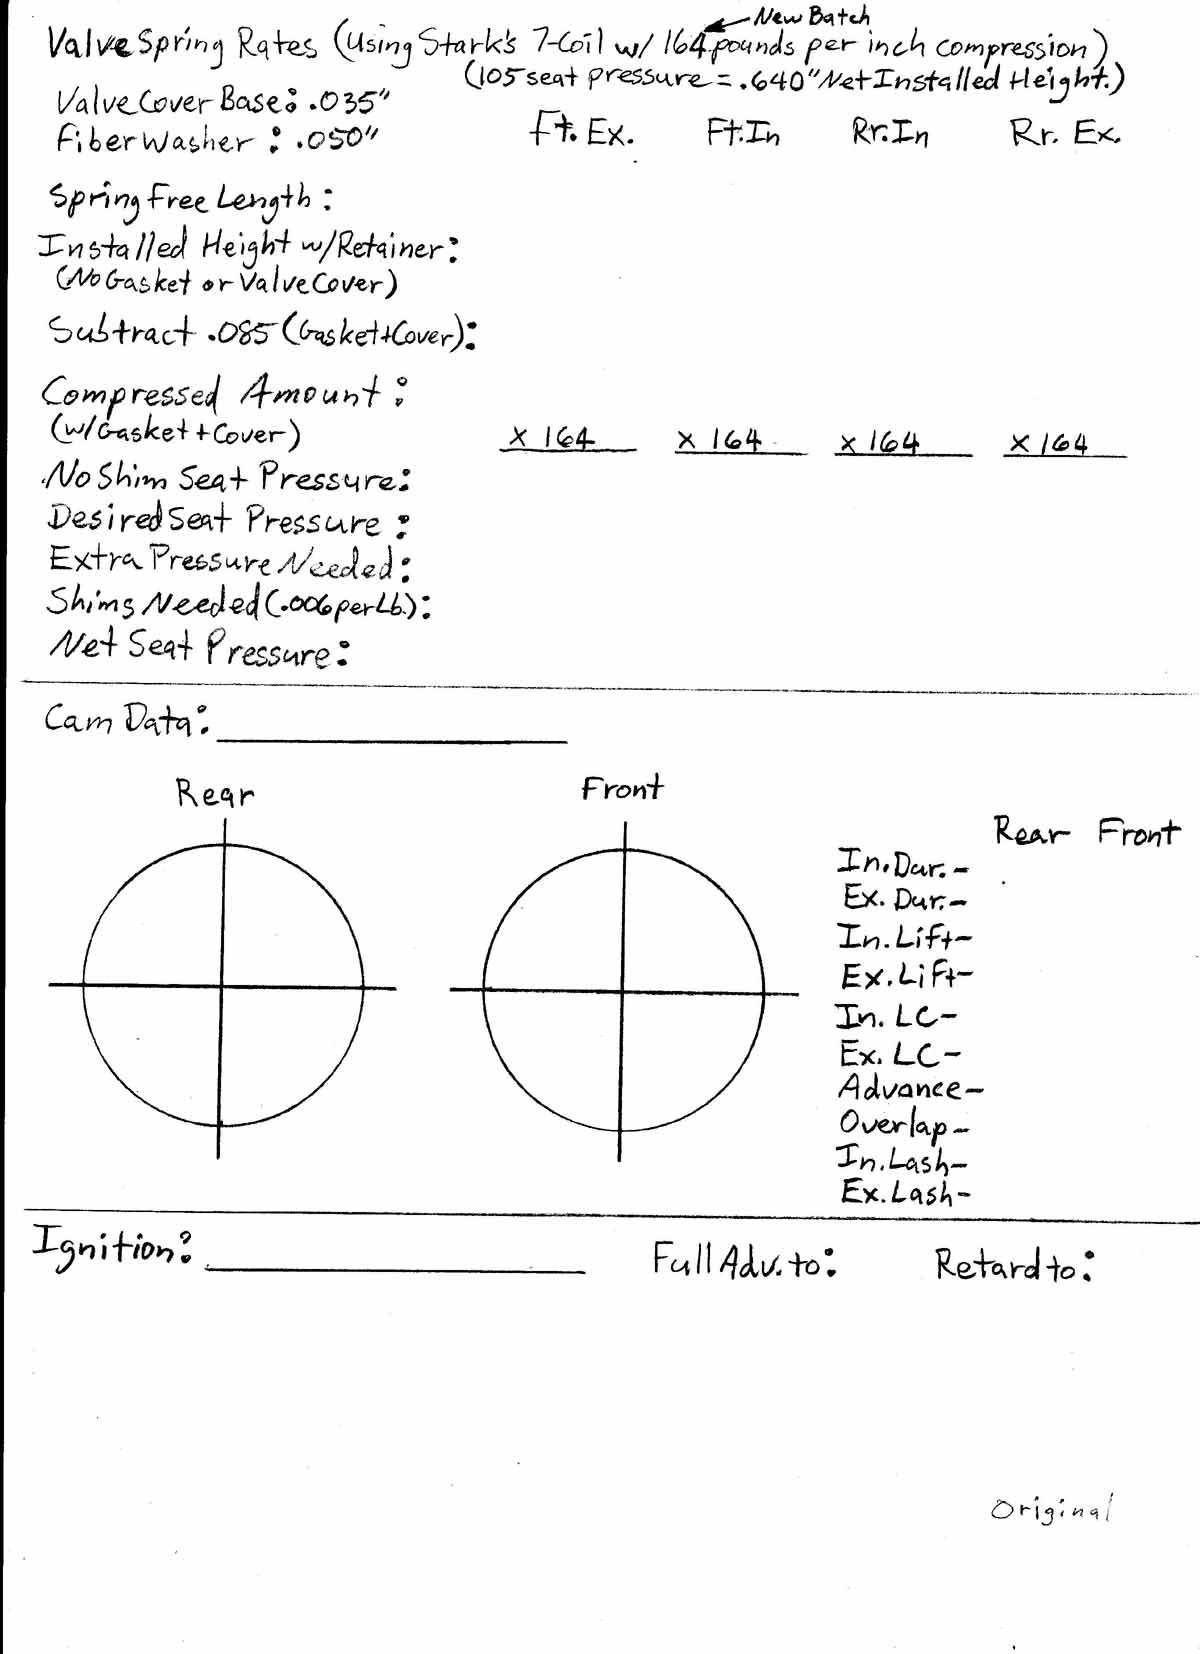 New Batch
Valve Spring Rates (Using Stark's 7-Coil w/ 164 pounds per inch compression)
(105 seat pressure = .640" Net Installed Height.)
Valve Cover Base: .035"
Fiber Washer : .050"
Ft. Ex. Ft. In Rr. In Rr. Ex.
Spring Free Length :
Installed Height w/Retainer:
(No Gasket or Valve Cover)
Subtract .085 (Gasket+Cover):
Compressed Amount :
(w/Gasket + Cover)
x 164 x 164 x 164 x 164
No Shim Seat Pressure:
Desired Seat Pressure :
Extra Pressure Needed:
Shims Needed (.006 per Lb.):
Net Seat Pressure:
Cam Data:
Rear Front
Rear Front
In. Dur. -
Ex. Dur. -
In. Lift -
Ex. Lift -
In. LC -
Ex. LC -
Advance -
Overlap -
In. Lash -
Ex. Lash -
Ignition: Full Adv. to: Retard to:
Original